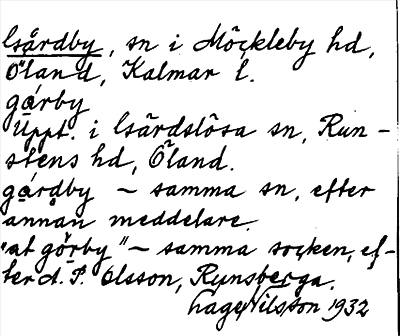 Gårdby, sn i Möckleby hd,
Öland, Kalmar l.
gǻrby
Uppt. i Gärdslösa sn, Run-
stens hd, Öland.
gårdby ~ samma sn, efter
annan meddelare.
"at görby" ~ samma socken, ef-
ter d. P. Olsson, Runsberga.
Lage Nilsson 1932